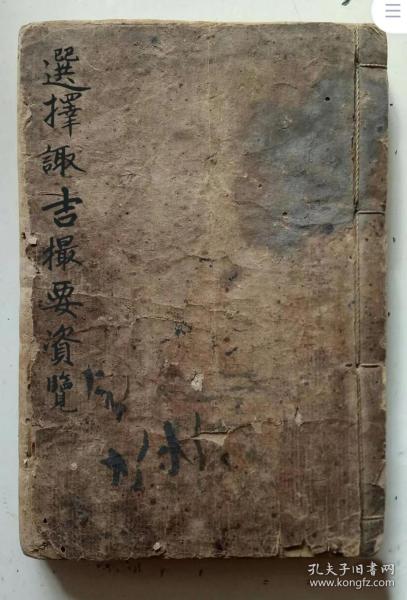 選擇諏吉撮要資覽
孔夫子旧书网
www.kongfz.com